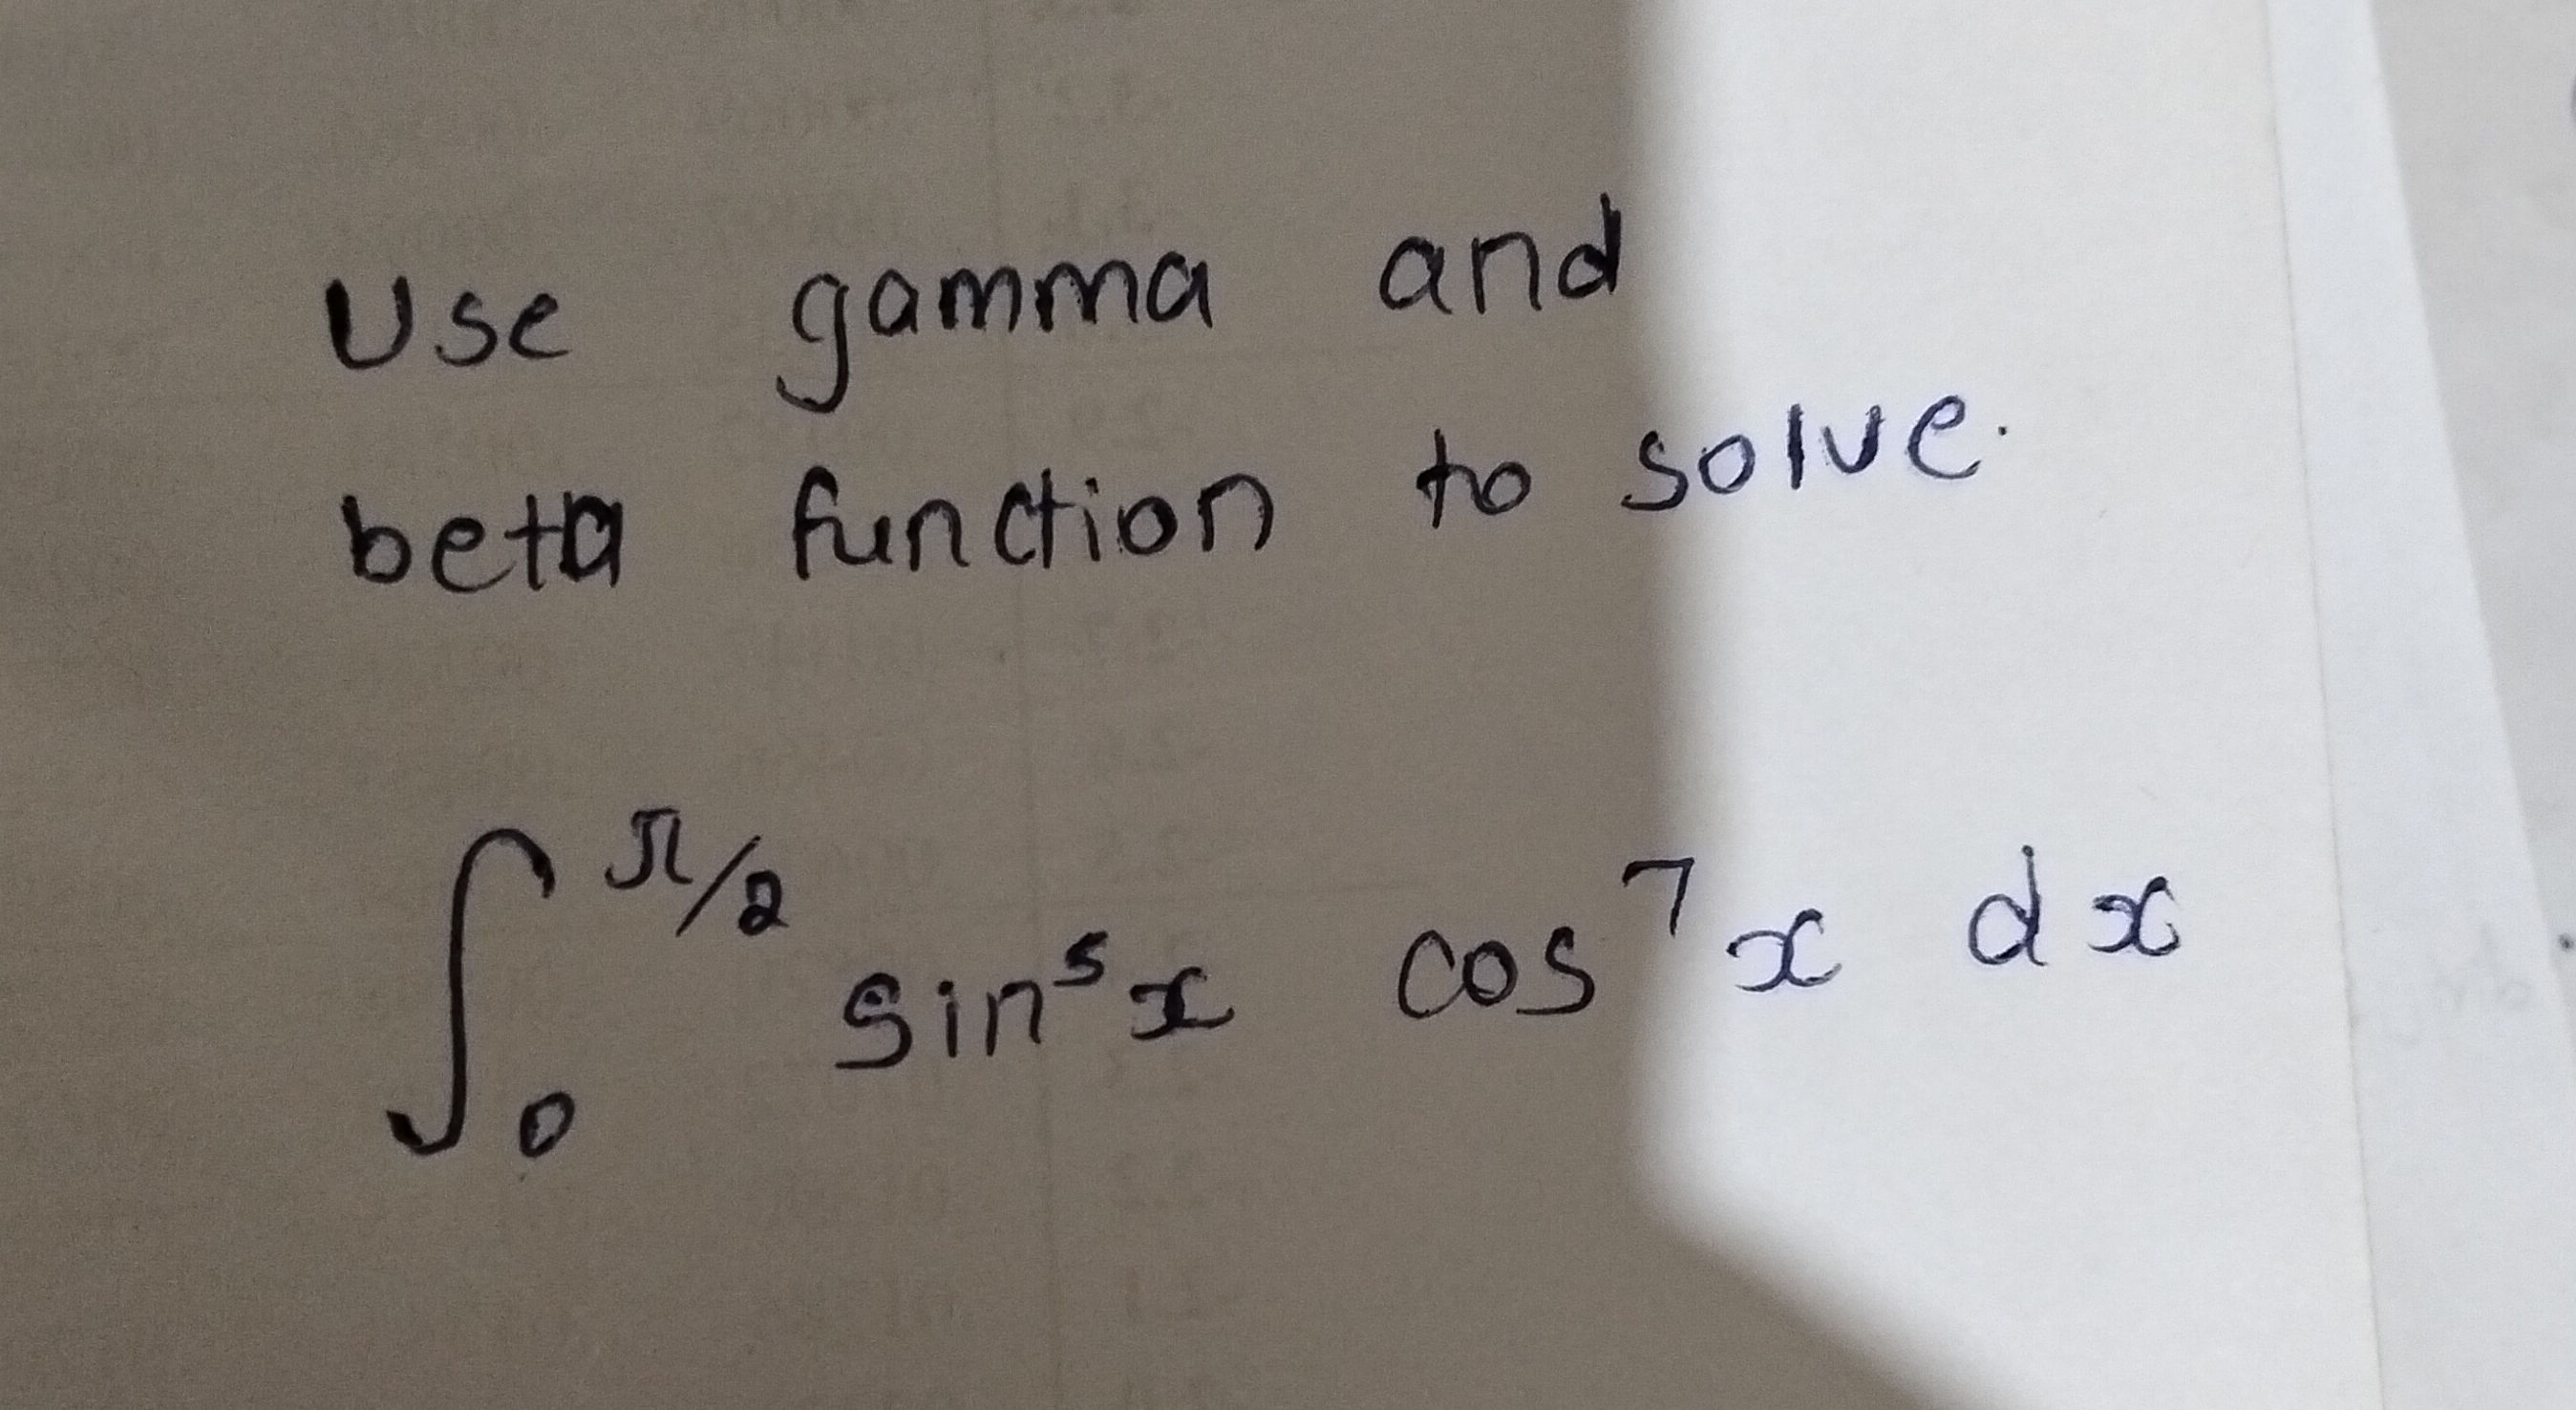 Use gamma and
beta function to solve.
∫₀^π/2 sin⁵x cos⁷x dx